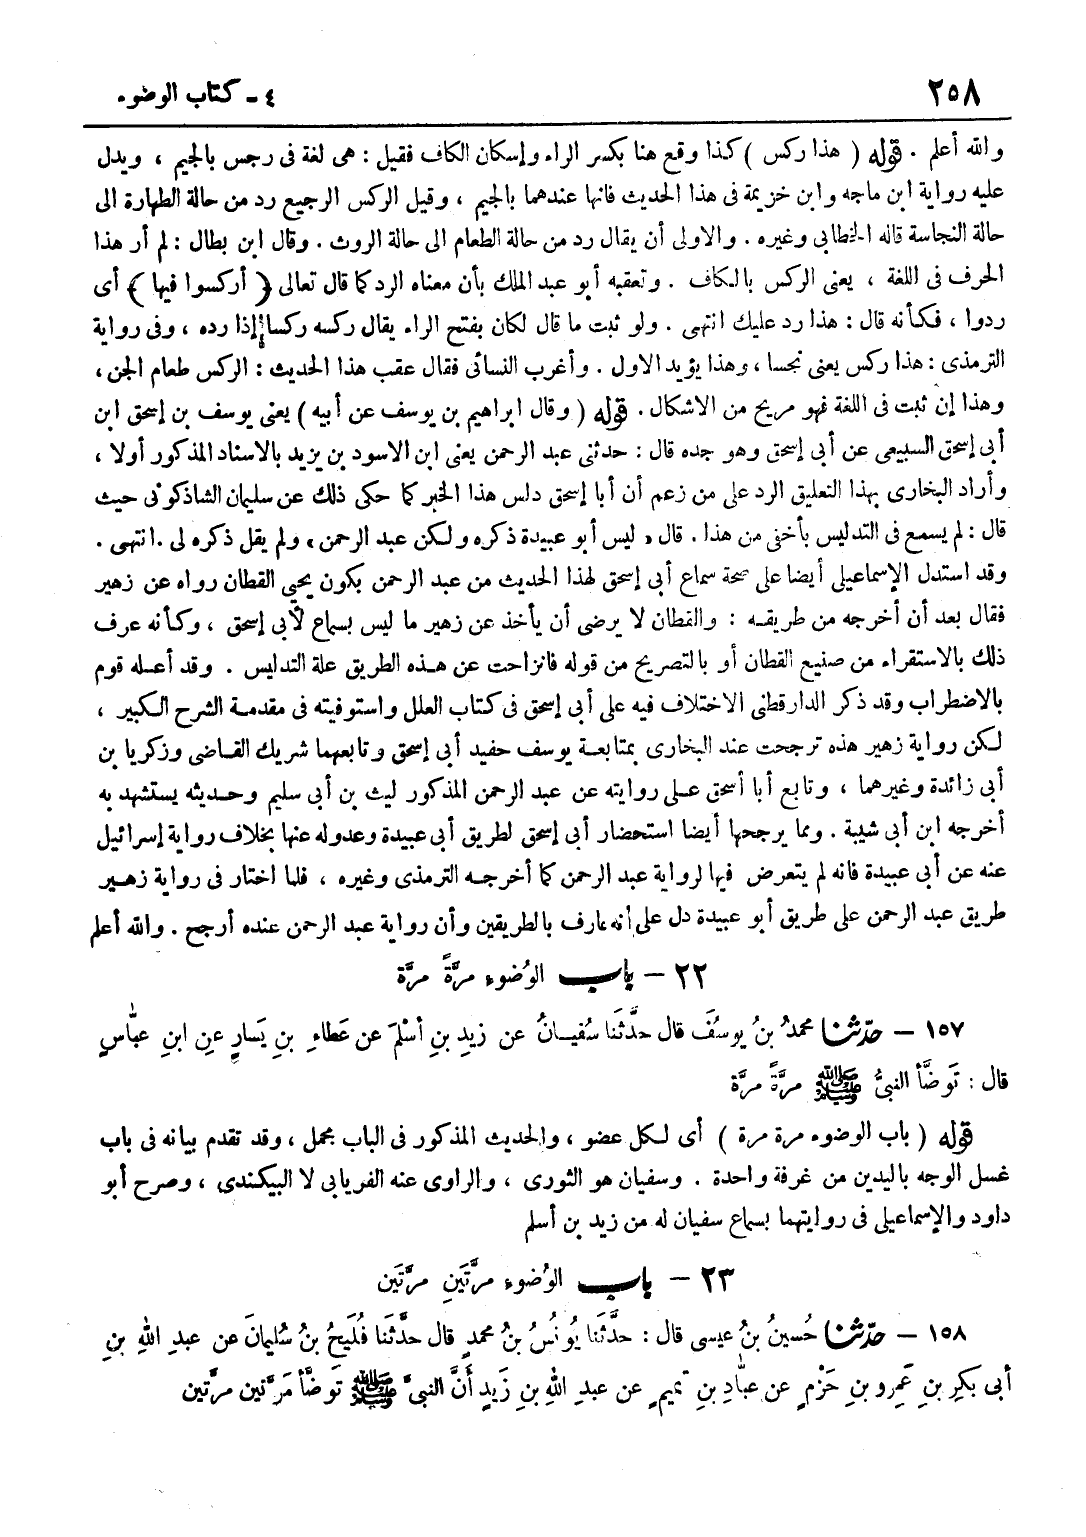 ٢٥٨
٤ - كتاب الوضوء
والله أعلم . قوله ( هذا ركس ) كذا وقع هنا بكسر الراء وإسكان الكاف فقيل : هى لغة فى رجس بالجيم ، ويدل
عليه رواية ابن ماجه وابن خزيمة فى هذا الحديث فانها عندهما بالجيم ، وقيل الركس الرجيع رد من حالة الطهارة الى
حالة النجاسة قاله الخطابى وغيره . والاولى أن يقال رد من حالة الطعام الى حالة الروث . وقال ابن بطال : لم أر هذا
الحرف فى اللغة ، يعنى الركس بالكاف . وتعقبه أبو عبد الملك بأن معناه الرد كما قال تعالى ﴿ أركسوا فيها ﴾ أى
ردوا ، فكأنه قال : هذا رد عليك انتهى . ولو ثبت ما قال لكان بفتح الراء يقال ركسه ركسا إذا رده ، وفى رواية
الترمذى : هذا ركس يعنى نجسا ، وهذا يؤيد الاول . وأغرب النسائى فقال عقب هذا الحديث : الركس طعام الجن ،
وهذا إن ثبت فى اللغة فهو مريح من الاشكال . قوله ( وقال ابراهيم بن يوسف عن أبيه ) يعنى يوسف بن إسحق ابن
أبى إسحق السبيعى عن أبى إسحق وهو جده قال : حدثنى عبد الرحمن يعنى ابن الاسود بن يزيد بالاسناد المذكور أولا ،
وأراد البخارى بهذا التعليق الرد على من زعم أن أبا إسحق دلس هذا الخبر كما حكى ذلك عن سليمان الشاذكونى حيث
قال : لم يسمع فى التدليس بأخفى من هذا . قال « ليس أبو عبيدة ذكره ولكن عبد الرحمن » ولم يقل ذكره لى . انتهى .
وقد استدل الإسماعيلى أيضا على صحة سماع أبى إسحق لهذا الحديث من عبد الرحمن بكون يحيى القطان رواه عن زهير
فقال بعد أن أخرجه من طريقه : والقطان لا يرضى أن يأخذ عن زهير ما ليس بسماع لأبى إسحق ، وكأنه عرف
ذلك بالاستقراء من صنيع القطان أو بالتصريح من قوله فانزاحت عن هذه الطريق علة التدليس . وقد أعله قوم
بالاضطراب وقد ذكر الدارقطنى الاختلاف فيه على أبى إسحق فى كتاب العلل واستوفيته فى مقدمة الشرح الكبير ،
لكن رواية زهير هذه ترجحت عند البخارى بمتابعة يوسف حفيد أبى إسحق وتابعهما شريك القاضى وزكريا بن
أبى زائدة وغيرهما ، وتابع أبا أسحق على روايته عن عبد الرحمن المذكور ليث بن أبى سليم وحديثه يستشهد به
أخرجه ابن أبى شيبة . ومما يرجحها أيضا استحضار أبى إسحق لطريق أبى عبيدة وعدوله عنها بخلاف رواية إسرائيل
عنه عن أبى عبيدة فانه لم يتعرض فيها لرواية عبد الرحمن كما أخرجه الترمذى وغيره ، فلما اختار فى رواية زهير
طريق عبد الرحمن على طريق أبو عبيدة دل على أنه عارف بالطريقين وأن رواية عبد الرحمن عنده أرجح . والله أعلم
٢٢ - باب الوُضوءِ مرَّةً مرَّة
١٥٧ - حدّثنا محمدُ بنُ يوسُفَ قال حدَّثَنا سُفيانُ عن زيدِ بنِ أسْلمَ عن عَطاءِ بنِ يَسارٍ عنِ ابنِ عبّاسٍ
قال : تَوضَّأ النبىُّ ﷺ مرَّةً مرَّة
قوله ( باب الوضوء مرة مرة ) أى لكل عضو ، والحديث المذكور فى الباب مجمل ، وقد تقدم بيانه فى باب
غسل الوجه باليدين من غرفة واحدة . وسفيان هو الثورى ، والراوى عنه الفريابى لا البيكندى ، وصرح أبو
داود والإسماعيلى فى روايتهما بسماع سفيان له من زيد بن أسلم
٢٣ - باب الوُضوءِ مرَّتَينِ مرَّتَين
١٥٨ - حدّثنا حُسينُ بنُ عيسى قال : حدَّثَنا يُونُسُ بنُ محمدٍ قال حدَّثَنا فُلَيحُ بنُ سُليمانَ عن عبدِ اللهِ بنِ
أبى بكرِ بنِ عَمرِو بنِ حَزْمٍ عن عبّادِ بنِ تميمٍ عن عبدِ اللهِ بنِ زَيدٍ أنَّ النبىَّ ﷺ تَوضَّأَ مَرَّتينِ مرَّتين